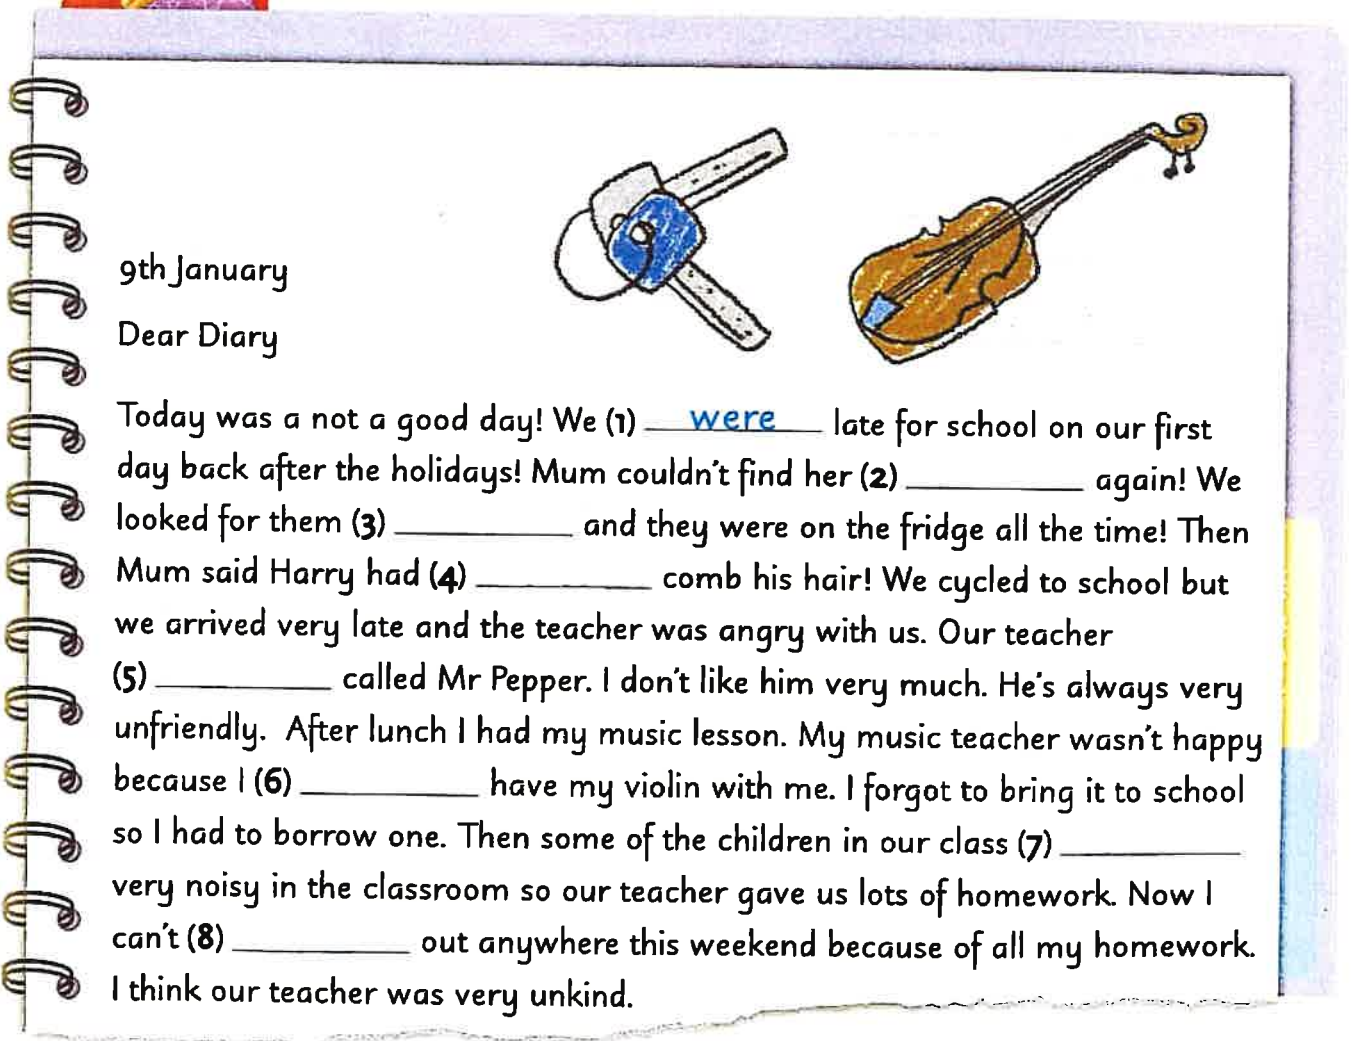 9th January
Dear Diary
Today was a not a good day! We (1) were late for school on our first
day back after the holidays! Mum couldn't find her (2) __________ again! We
looked for them (3) __________ and they were on the fridge all the time! Then
Mum said Harry had (4) __________ comb his hair! We cycled to school but
we arrived very late and the teacher was angry with us. Our teacher
(5) __________ called Mr Pepper. I don't like him very much. He's always very
unfriendly. After lunch I had my music lesson. My music teacher wasn't happy
because I (6) __________ have my violin with me. I forgot to bring it to school
so I had to borrow one. Then some of the children in our class (7) __________
very noisy in the classroom so our teacher gave us lots of homework. Now I
can't (8) __________ out anywhere this weekend because of all my homework.
I think our teacher was very unkind.